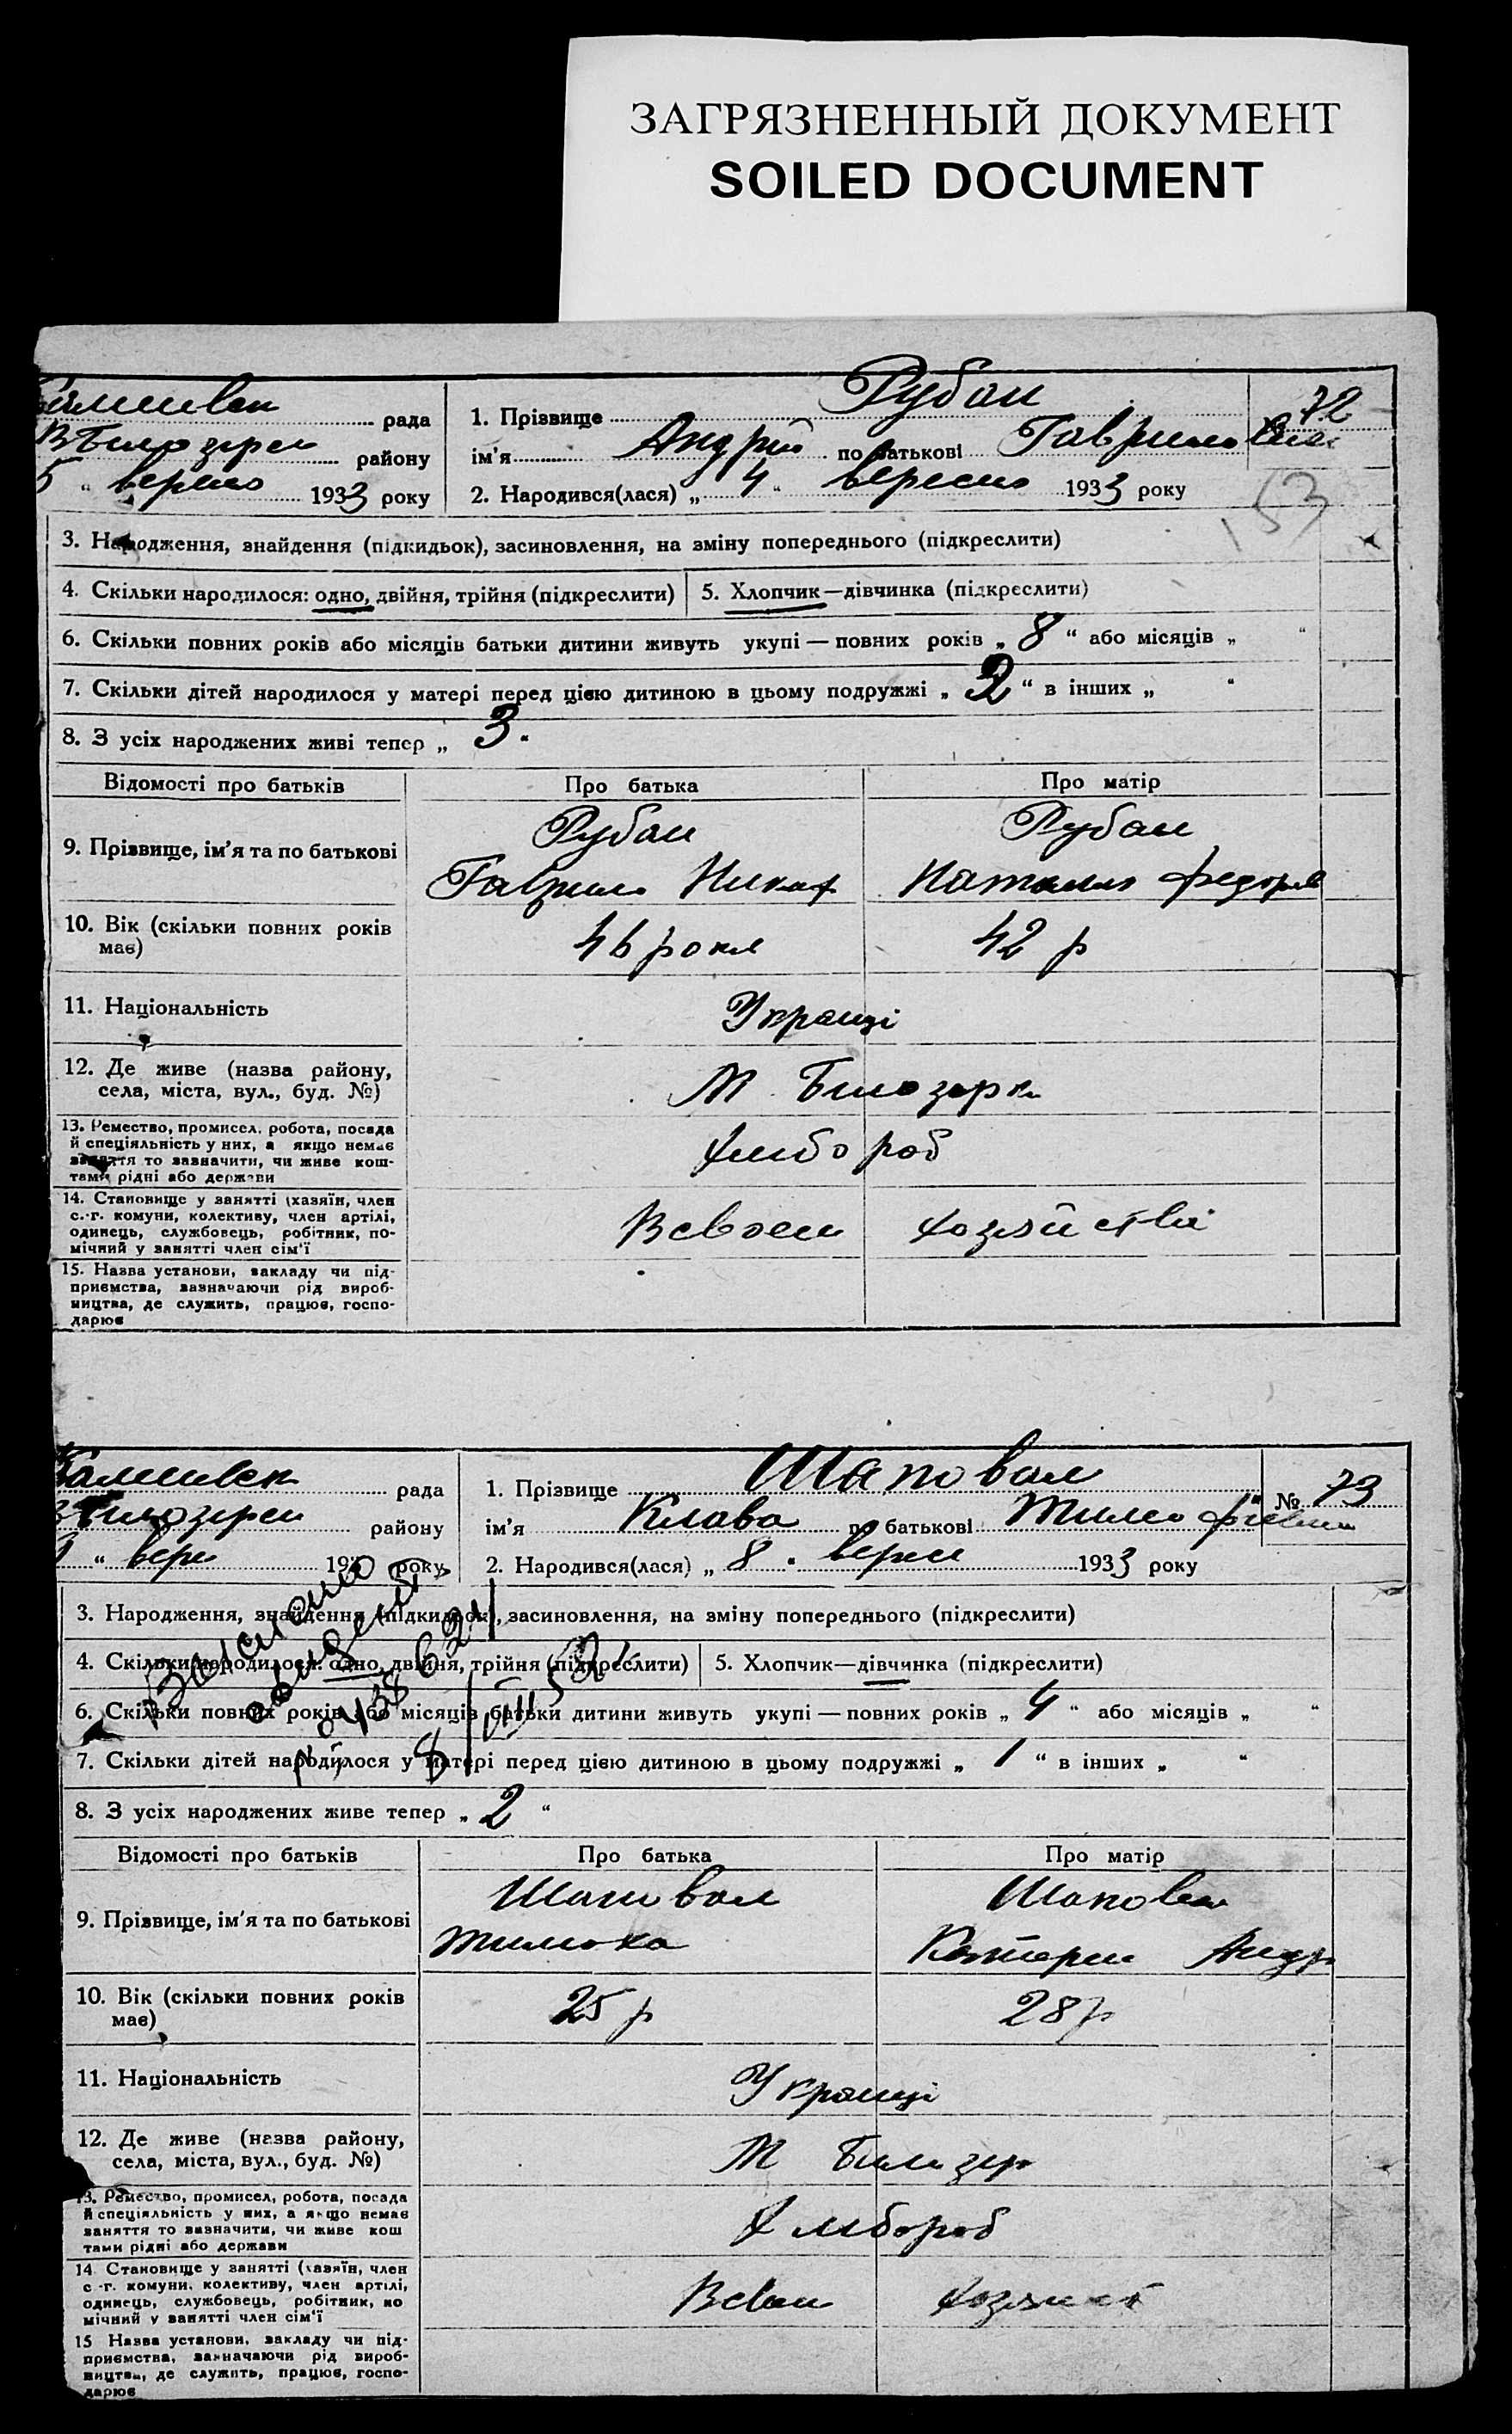 ЗАГРЯЗНЕННЫЙ ДОКУМЕНТ
SOILED DOCUMENT
рада
району
5 " 1933 року
1. Прізвище Рубан
72
ім'я Андрій по батькові
2. Народився(лася) „ 4 " 1933 року
153
3. Народження, знайдення (підкидьок), засиновлення, на зміну попереднього (підкреслити)
4. Скільки народилося: одно, двійня, трійня (підкреслити)
5. Хлопчик—дівчинка (підкреслити)
6. Скільки повних років або місяців батьки дитини живуть укупі — повних років „ 8 “ або місяців „ “
7. Скільки дітей народилося у матері перед цією дитиною в цьому подружжі „ 2 “ в інших „ “
8. З усіх народжених живі тепер „ 3 “
Відомості про батьків
Про батька
Про матір
9. Прізвище, ім'я та по батькові
Рубан
Рубан
10. Вік (скільки повних років
має)
46 роки
42 р
11. Національність
Українці
12. Де живе (назва району,
села, міста, вул., буд. №)
М. Билозерк
13. Ремество, промисел, робота, посада
й спеціяльність у них, а якщо немає
заняття то зазначити, чи живе кош-
тами рідні або держави
Хлибороб
14. Становище у занятті (хазяїн, член
с.-г. комуни, колективу, член артілі,
одинець, службовець, робітник, по-
мічний у занятті член сім'ї
В своем хозяйстві
15. Назва установи, закладу чи під-
приємства, зазначаючи рід вироб-
ництва, де служить, працює, госпо-
дарює
рада
району
року
1. Прізвище Шаповал
№ 73
ім'я Клава по батькові
2. Народився(лася) „ 8 " 1933 року
3. Народження, знайдення (підкидьок), засиновлення, на зміну попереднього (підкреслити)
4. Скільки народилося: одно, двійня, трійня (підкреслити)
5. Хлопчик—дівчинка (підкреслити)
6. Скільки повних років або місяців батьки дитини живуть укупі — повних років „ 4 “ або місяців „ “
7. Скільки дітей народилося у матері перед цією дитиною в цьому подружжі „ 1 “ в інших „ “
8. З усіх народжених живе тепер „ 2 “
Відомості про батьків
Про батька
Про матір
9. Прізвище, ім'я та по батькові
Шаповал
Шаповал
10. Вік (скільки повних років
має)
25 р
28 р
11. Національність
Українці
12. Де живе (назва району,
села, міста, вул., буд. №)
М Билозер
13. Ремество, промисел, робота, посада
й спеціяльність у них, а якщо немає
заняття то зазначити, чи живе кош
тами рідні або держави
Хлибороб
14 Становище у занятті (хазяїн, член
с -г. комуни, колективу, член артілі,
одинець, службовець, робітник, по
мічний у занятті член сім'ї
15 Назва установи, закладу чи під-
приємства, зазначаючи рід вироб-
ництва, де служить, працює, госпо-
дарює